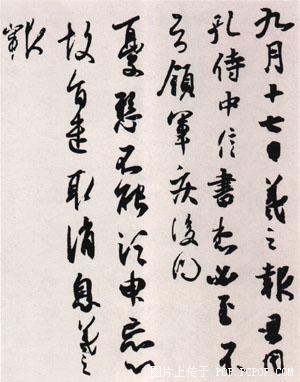 九月十七日羲之報且因
孔侍中信書想必至不
知領軍疾後問
憂懸不能須臾忘心
故旨遣取消息羲之
報
图片上传于：POP.PCPOP.COM